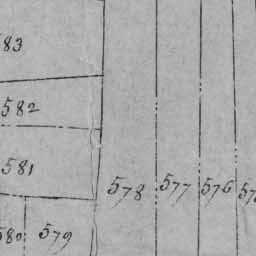 583
582
581
578 577 576
580 579